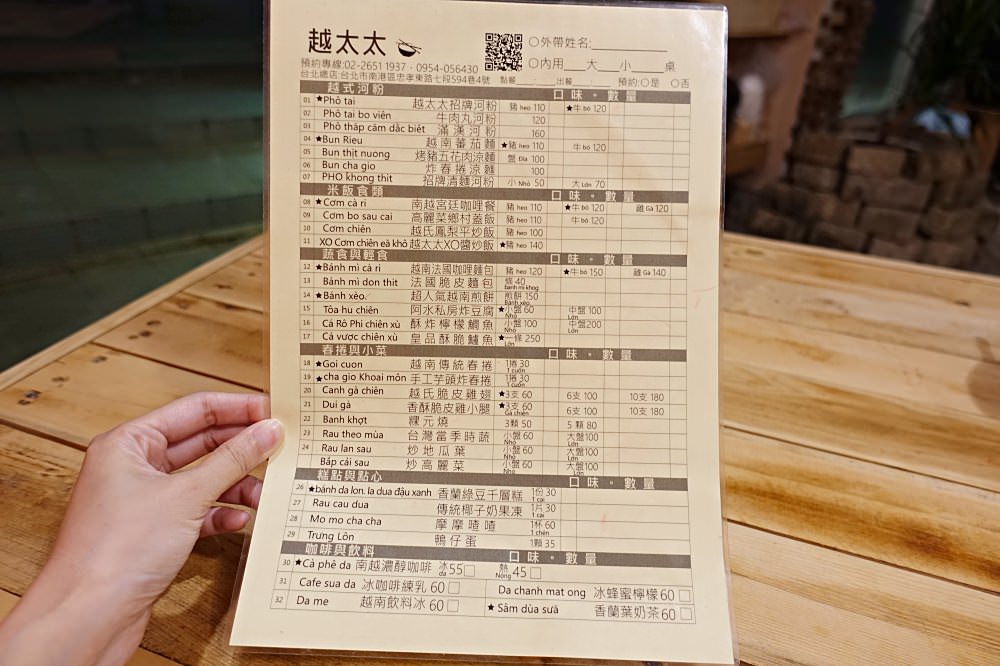 越太太
○外帶姓名:
預約專線:02-2651 1937 · 0954-056430
○內用___大___小___桌
台北總店:台北市南港區忠孝東路七段594巷4號 點餐 __:__ 出餐 預約:○是 ○否
越式河粉 口味・數量
01 ★Phở tai 越太太招牌河粉 豬 heo 110 ★牛 bò 120
02 Phở tai bo viên 牛肉丸河粉 120
03 Phở thập cẩm đắc biêt 滿漢河粉 160
04 ★Bun Rieu 越南蕃茄麵 ★豬 heo 110 牛 bò 120
05 Bun thịt nuong 烤豬五花肉涼麵 盤 Đĩa 100
06 Bun cha gio 炸春捲涼麵 100
07 PHO khong thit 招牌清麵河粉 小 Nhỏ 50 大 Lớn 70
米飯食類 口味・數量
08 ★Cơm cà ri 南越宮廷咖哩餐 豬 heo 110 ★牛 bò 120 雞 Gà 120
09 Cơm bo sau cai 高麗菜鄉村蓋飯 豬 heo 110 牛 bò 120
10 Cơm chiên 越氏鳳梨平炒飯 豬 heo 100
11 XO Cơm chiên eă khô 越太太XO醬炒飯 ★豬 heo 140
蔬食與輕食 口味・數量
12 ★Bánh mì cà ri 越南法國咖哩麵包 豬 heo 120 ★牛 bò 150 雞 Gà 140
13 Bánh mì don thit 法國脆皮麵包 條 40
banh mì khog
14 ★Bánh xèo. 超人氣越南煎餅 煎餅 150
Bánh xèo
15 Tõa hu chiên 阿水私房炸豆腐 ★小盤 60 中盤 100
Nhỏ Lớn
16 Cá Rô Phi chiên xù 酥炸檸檬鯛魚 小盤 100 中盤200
Nhỏ Lớn
17 Cá vược chiên xù 皇品酥脆鱸魚 ★一條 250
Lớn
春捲與小菜 口味・數量
18 ★Goi cuon 越南傳統春捲 1捲 30
1 cuốn
19 ★cha gio Khoai môn 手工芋頭炸春捲 1捲 30
1 cuốn
20 Canh gà chiên 越氏脆皮雞翅 ★3支 60 6支 100 10支 180
21 Dui gà 香酥脆皮雞小腿 ★3支 60 6支 100 10支 180
Gà chiên
22 Banh khợt 粿元燒 3顆 50 5 顆 80
23 Rau theo mùa 台灣當季時蔬 小盤 60 大盤100
Nhỏ Lớn
24 Rau lan sau 炒地瓜葉 小盤 60 大盤100
Nhỏ Lớn
Bắp cải sau 炒高麗菜 小盤 60 大盤100
Nhỏ Lớn
糕點與點心 口味・數量
26 ★bánh da lon. la dua đậu xanh 香蘭綠豆千層糕 1份 30
1 cái
27 Rau cau dua 傳統椰子奶果凍 1片 30
1 cái
28 Mo mo cha cha 摩摩喳喳 1杯 60
1 chén
29 Trưng Lôn 鴨仔蛋 1顆 35
咖啡與飲料 口味・數量
30 ★Cà phê da 南越濃醇咖啡 冰55□ 熱 45□
da Nóng
31 Cafe sua da 冰咖啡練乳 60□ Da chanh mat ong 冰蜂蜜檸檬60□
32 Da me 越南飲料冰 60□ ★Sâm dùa sưã 香蘭葉奶茶60□